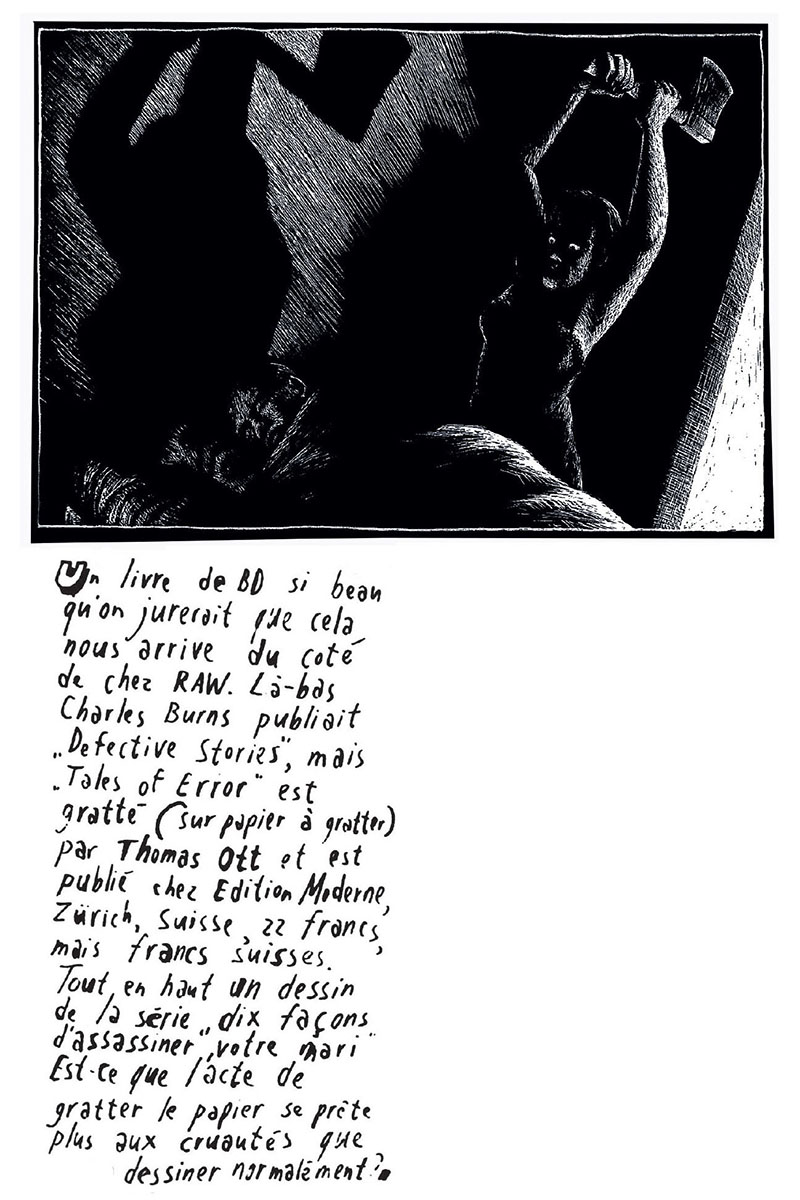 Un livre de BD si beau
qu'on jurerait que cela
nous arrive du coté
de chez RAW. Là-bas
Charles Burns publiait
„Defective Stories", mais
„Tales of Error" est
gratté (sur papier à gratter)
par Thomas Ott et est
publié chez Edition Moderne,
Zürich, Suisse, 22 francs,
mais francs suisses.
Tout en haut un dessin
de la série „dix façons
d'assassiner votre mari"
Est-ce que l'acte de
gratter le papier se prête
plus aux cruautés que
dessiner normalement?